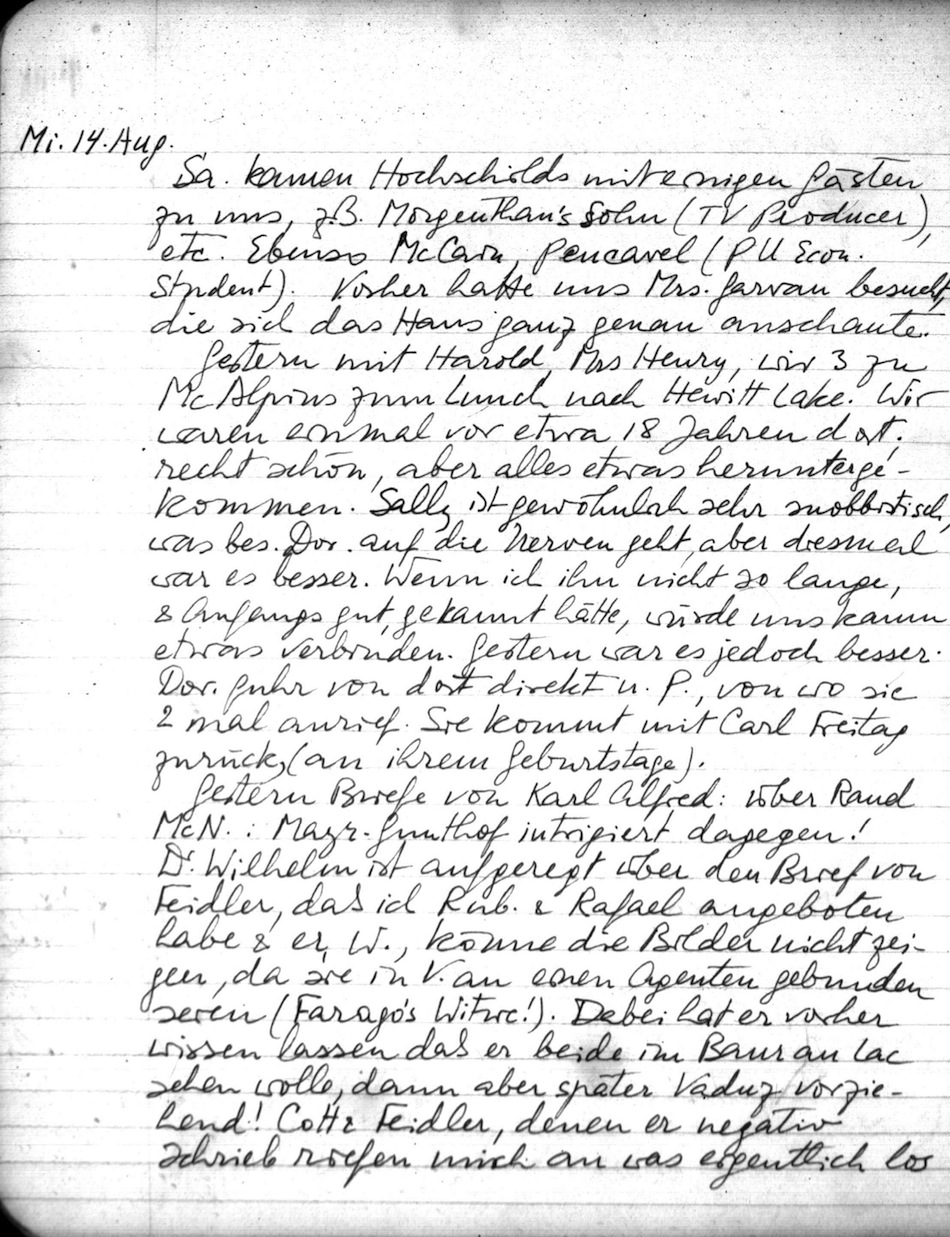 Mi. 14. Aug.
Sa. kamen Hochschilds mit einigen Gästen
zu uns, z.B. Morgenthau's Sohn (TV Producer),
etc. Ebenso McCain, Pencavel (PU Econ.
Student). Vorher hatte uns Mrs. Garvan besucht,
die sich das Haus ganz genau anschaute.
Gestern mit Harold, Mrs Henry, wir 3 zu
McAlpins zum Lunch nach Hewitt Lake. Wir
waren einmal vor etwa 18 Jahren dort.
recht schön, aber alles etwas herunterge-
kommen. Sally ist gewöhnlich sehr snobbistisch,
was bes. Dor. auf die Nerven geht, aber diesmal
war es besser. Wenn ich ihn nicht so lange,
& Anfangs gut, gekannt hätte, würde uns kaum
etwas verbinden. Gestern war es jedoch besser.
Dor. fuhr von dort direkt n. P., von wo sie
2 mal anrief. Sie kommt mit Carl Freitag
zurück, (an ihrem Geburtstage).
Gestern Briefe von Karl Alfred: über Rand
McN. : Mayr-Gunthof intrigiert dagegen!
Dr. Wilhelm ist aufgeregt über den Brief von
Feidler, daß ich Rub. & Rafael angeboten
habe & er, W., könne die Bilder nicht zei-
gen, da sie in V. an einen Agenten gebunden
seien (Farago's Witwe!). Dabei hat er vorher
wissen lassen daß er beide im Baur au Lac
sehen wolle, dann aber später Vaduz vorzie-
hend! Cott & Feidler, denen er negativ
schrieb riefen mich an was eigentlich los